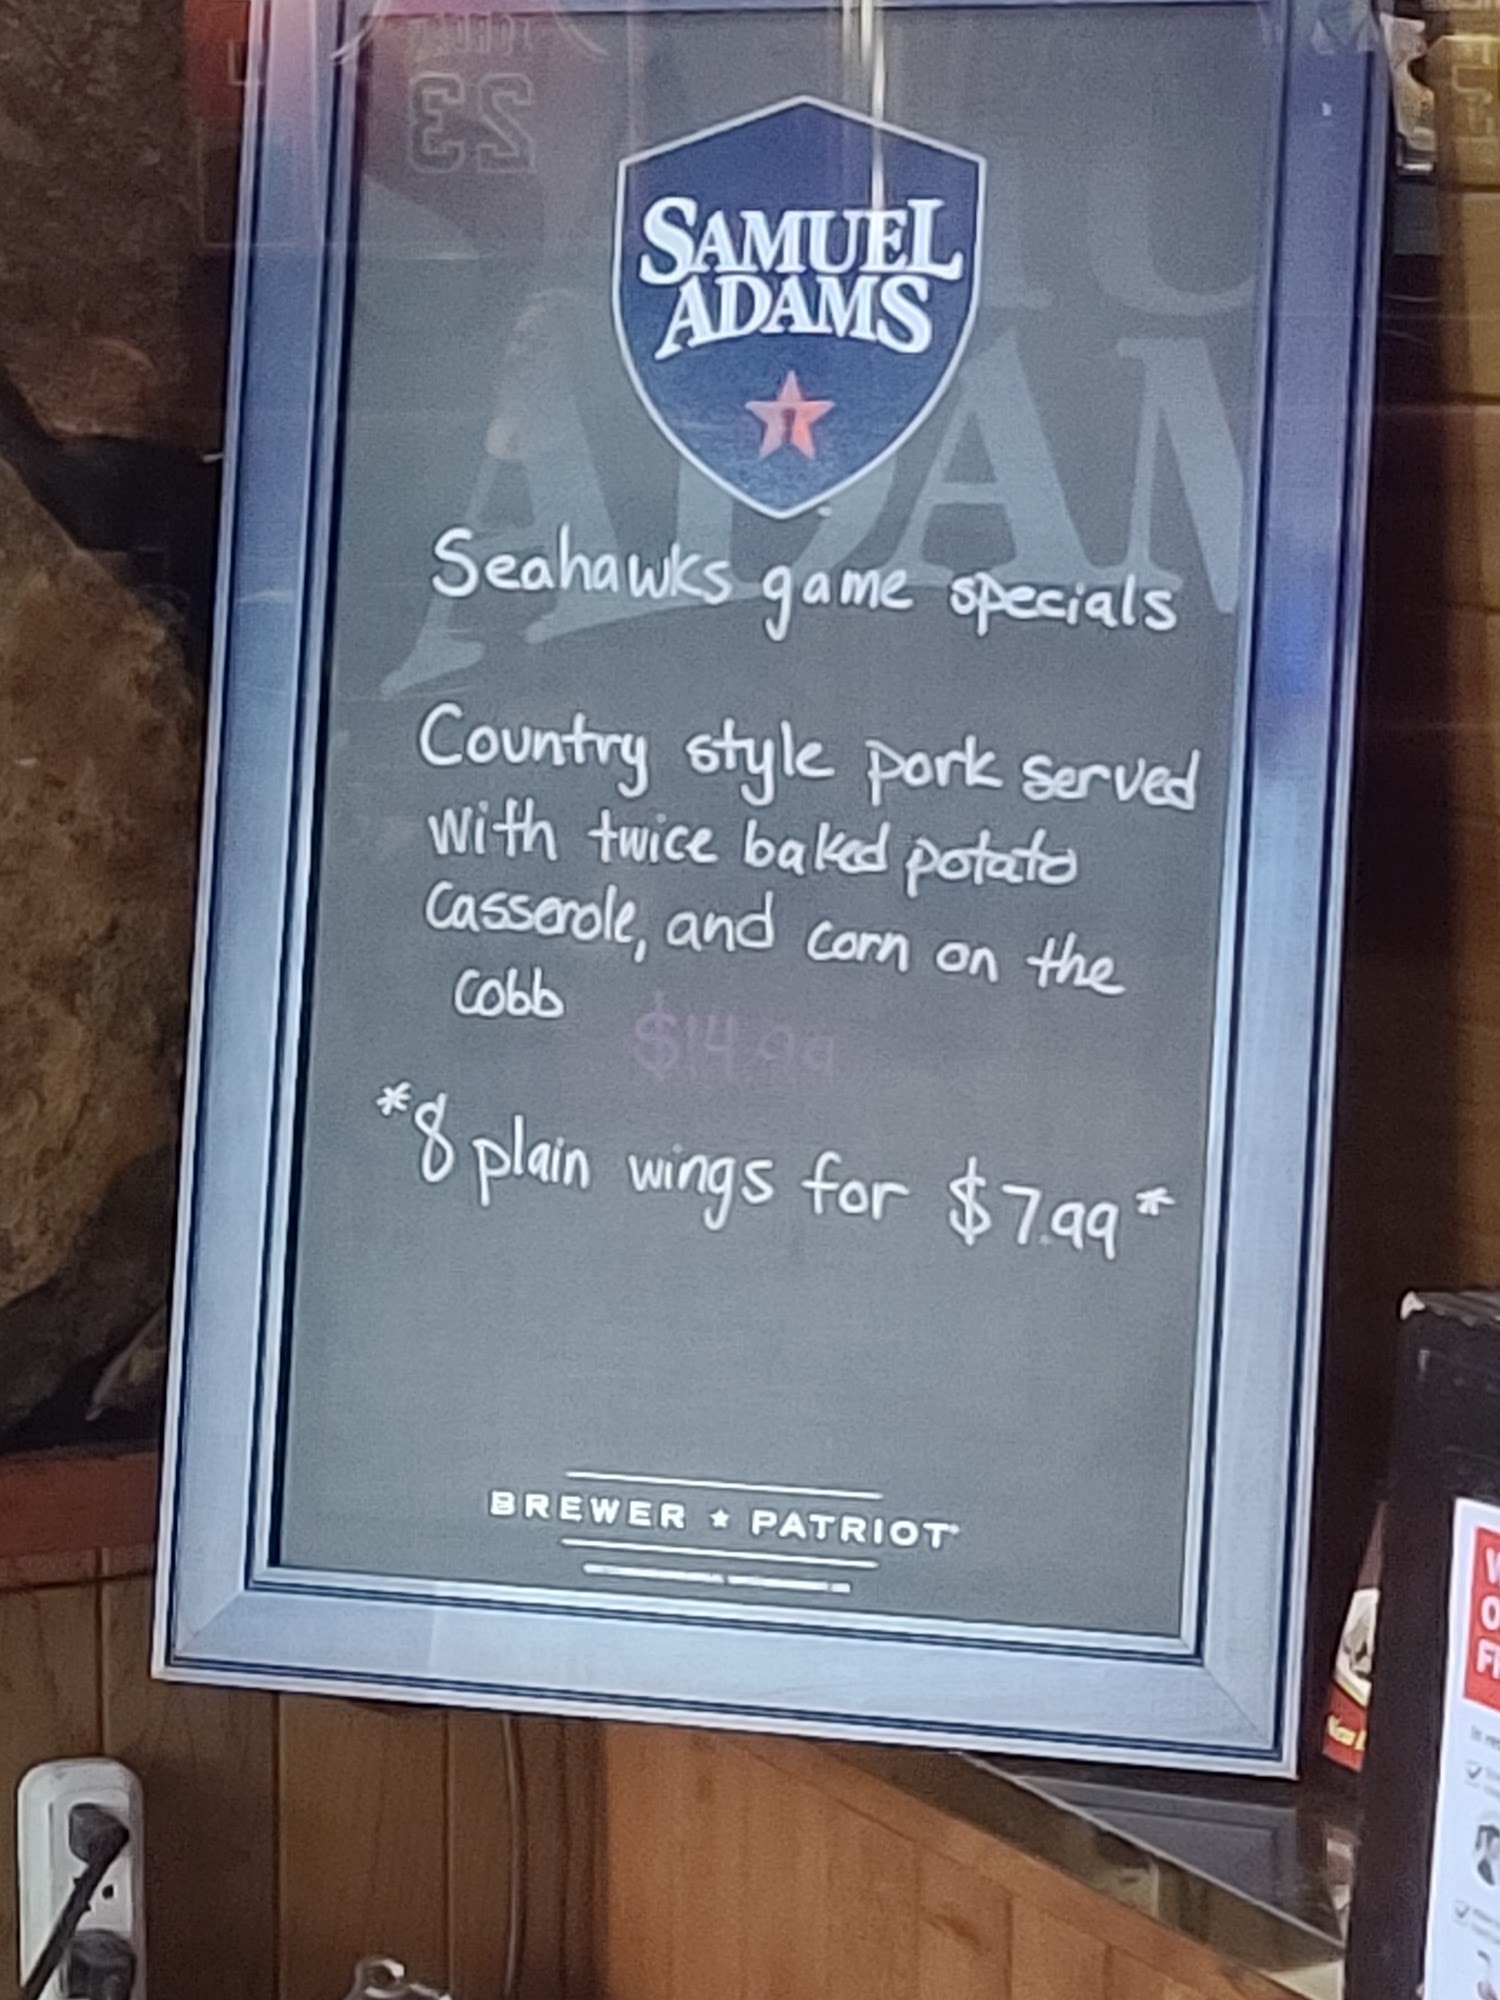 SAMUEL
ADAMS
Seahawks game specials
Country style pork served
with twice baked potato
Casserole, and corn on the
cobb
$14.99
*8 plain wings for $7.99*
BREWER ★ PATRIOT
23